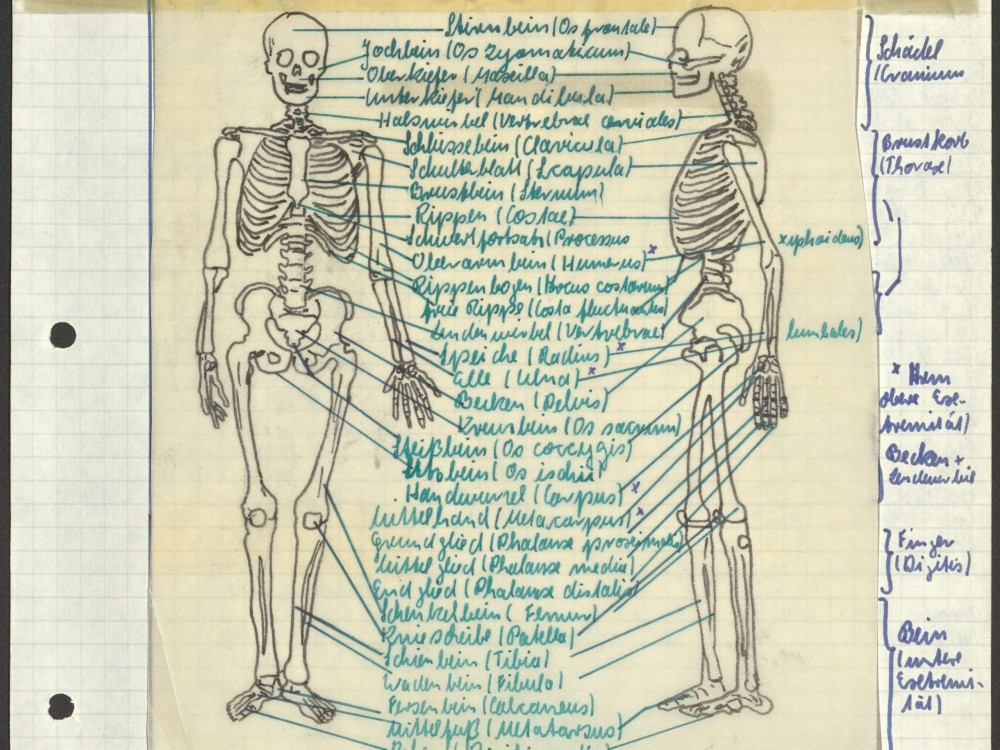 Stirnbein (Os frontale)
Jochbein (Os Zygomaticum)
Oberkiefer (Maxilla)
Unterkiefer (Mandibula)
Halswirbel (Vertebrae cervicales)
Schlüsselbein (Clavicula)
Schulterblatt (Scapula)
Brustbein (Sternum)
Rippen (Costae)
Schwertfortsatz (Processus xyphoideus)
Oberarmbein (Humerus) x
Rippenbogen (Arcus costarum)
freie Rippe (Costa fluctuantes)
Lendenwirbel (Vertebrae lumbales)
Speiche (Radius) x
Elle (Ulna) x
Becken (Pelvis)
Kreuzbein (Os sacrum)
Steißbein (Os coccygis)
Sitzbein (Os ischii)
Handwurzel (Carpus) x
Mittelhand (Metacarpus) x
Grundglied (Phalanx proximalis)
Mittelglied (Phalanx media)
Endglied (Phalanx distalis)
Schenkelbein (Femur)
Kniescheibe (Patella)
Schienbein (Tibia)
Wadenbein (Fibula)
Fersenbein (Calcaneus)
Mittelfuß (Metatarsus)
Schädel
(Cranium
Brustkorb
(Thorax)
x
obere Exe-
tremität)
Becken +
Lendenwirbel
Finger
(Digitis)
Bein
(untere
Extremi-
tät)